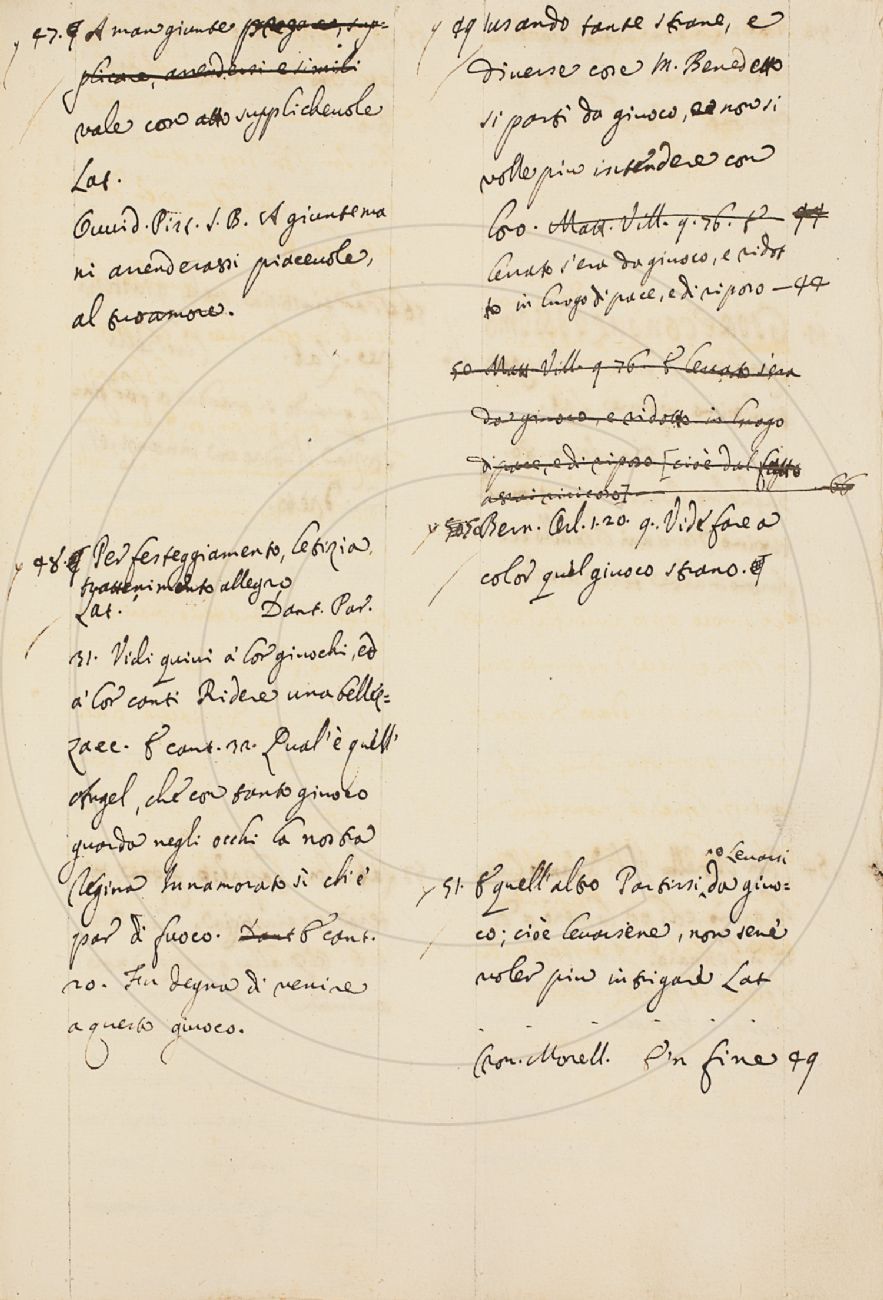 47. ¶ A man giunte pregare, sup=
plicare, arrendersi e simili
vale con atto supplichevole
Lat.
Ovvid. Pist. S. B. A giunte ma
ni arrenderassi piacevole,
al tuo amore.
48. ¶ Per festeggiamento, letizia,
trattenimento allegro
Lat. Dant. Par.
31. Vidi quivi a' lor giuochi, ed
a' lor canti Ridere una bellez=
za ec. E cant. 32. Qual' è quell'
Angel, che con tanto giuoco
guarda negli occhi la nostra
Regina Innamorato sì che
par di fuoco. Dant E cant.
20. Fu degna di venire
a questo giuoco.
49 usando tante strane, e
diverse cose M. Benedetto
si partì da giuoco, e non si
volle più intendere con
loro. Matt. Vill. 9. 76. E 44
levato s'era da giuoco, e ridot
to in luogo di pace, e di riposo — 44
50 Matt. Vill. 9 76. E levato s'era
da giuoco, e ridotto in luogo
di pace, e di riposo [cioè dal fatto
66
50 Bern. Orl. 1. 20. 9. Vide fare a
color quel giuoco strano. ¶
51. E quell'altro Partirsi, o Levarsi da giuo=
co; cioè levarsene, non sene
voler più intrigare Lat
Cron. Morell. E in fine 49